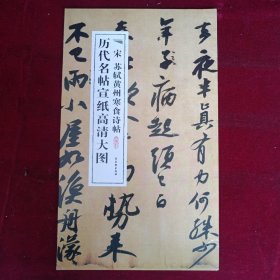 去夜半真有力何殊少
年子病起鬚已白
宋 苏轼黄州寒食诗帖
历代名帖宣纸高清大图
勢来
不已雨小屋如漁舟濛